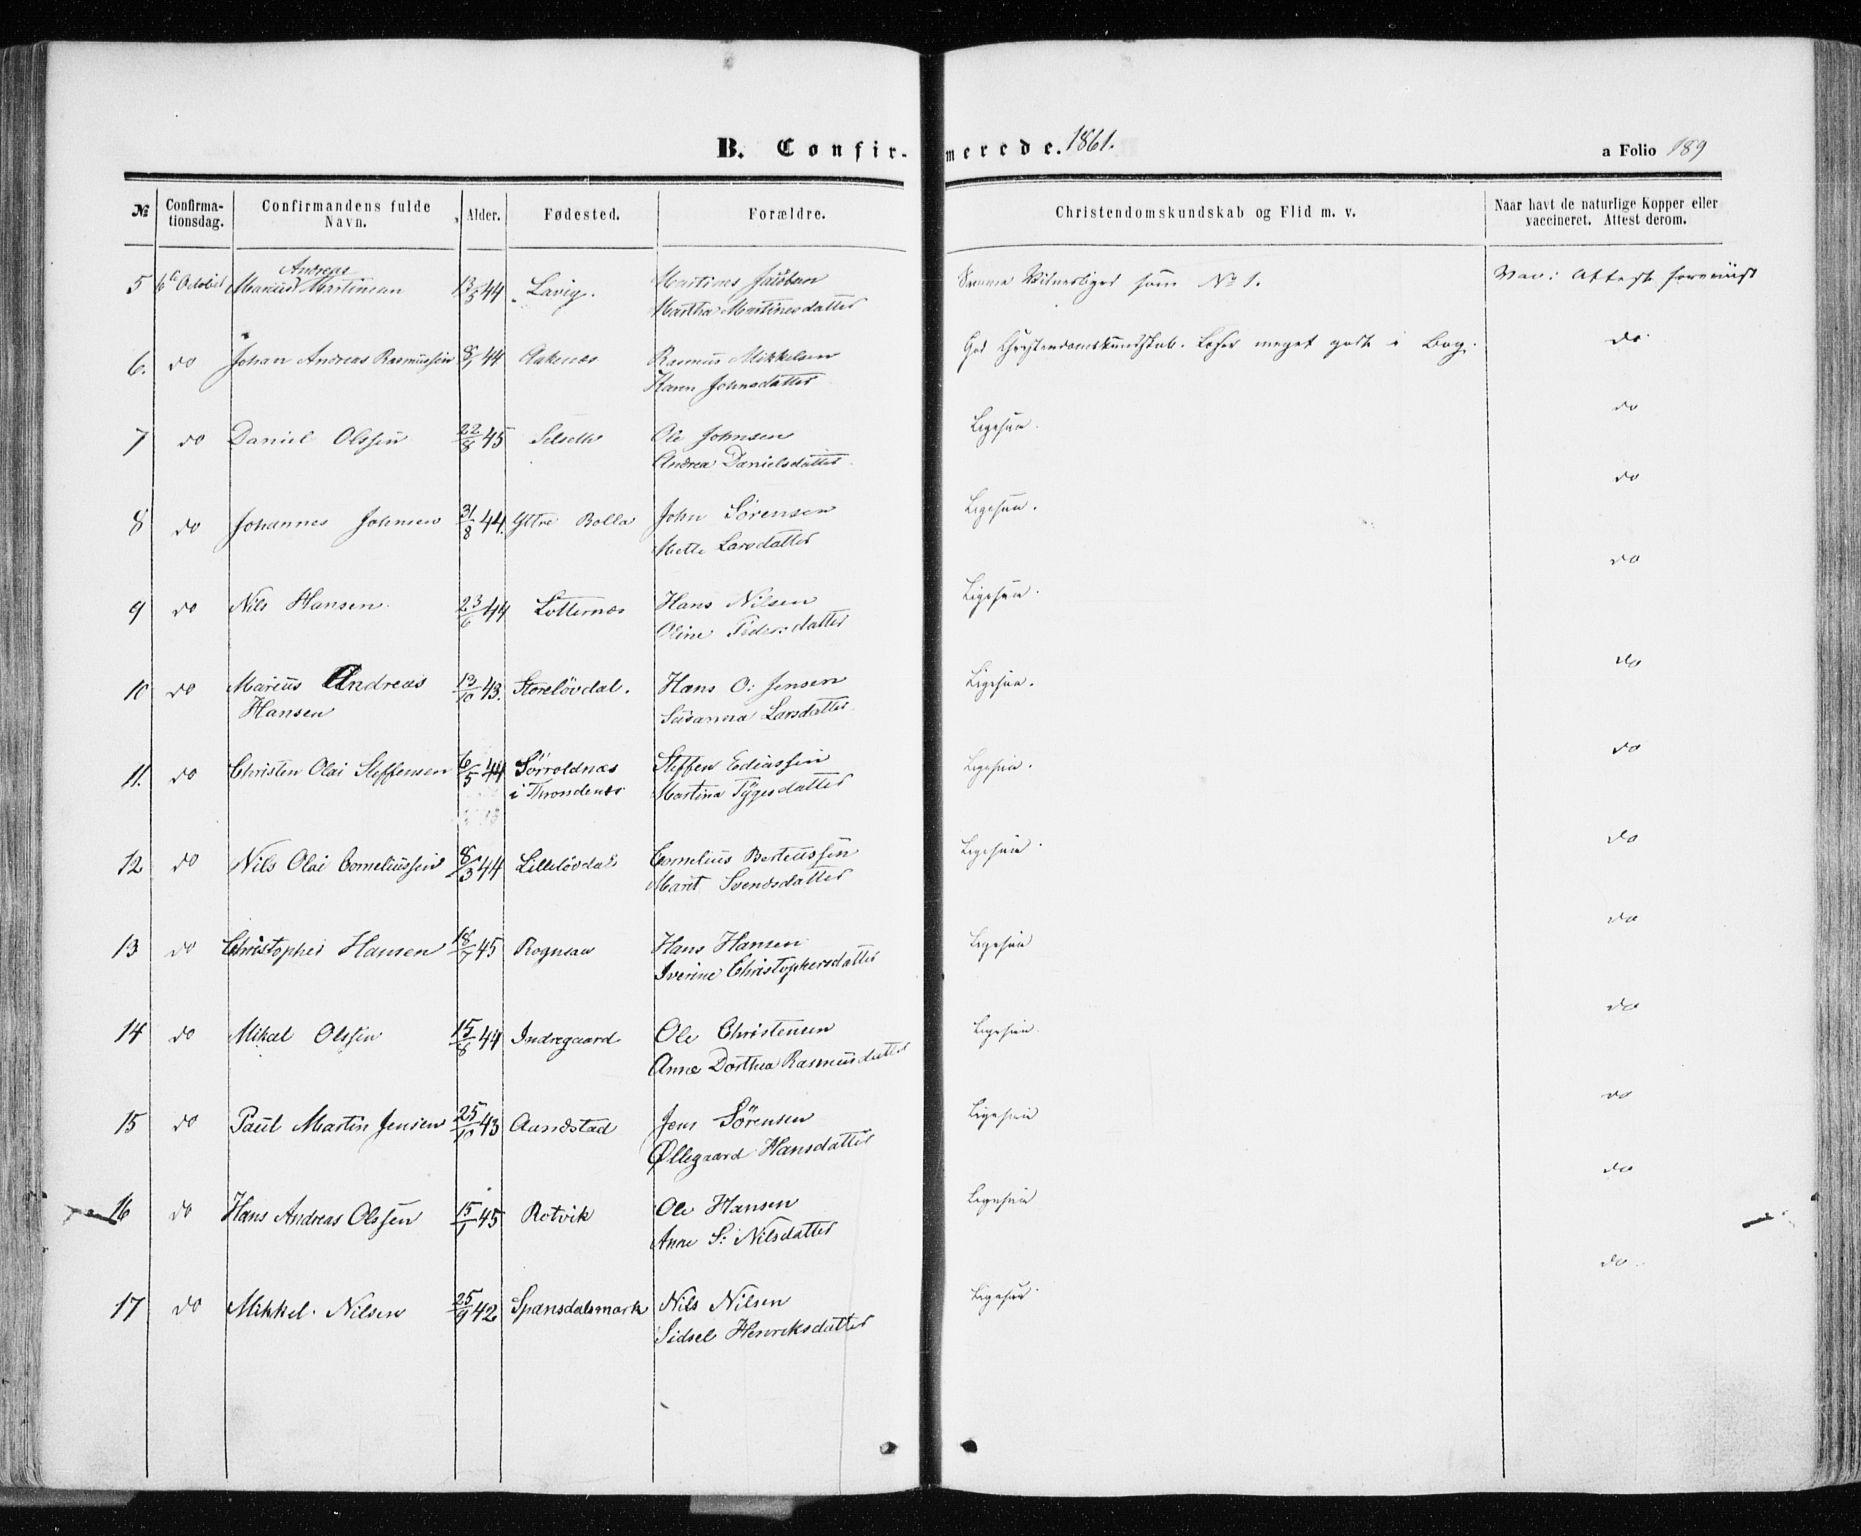 B. Confir-merede. 1861.
a Folio 189
№ Confirma-tionsdag. Confirmandens fulde Navn. Alder. Fødested. Forældre. Christendomskundskab og Flid m. v. Naar havt de naturlige Kopper eller vaccineret. Attest derom.
Andreas
5 6te October Marius Martinsen 13/5 44 Lavig. Martines Jacobsen Samme Vidnesbyrd som No 1. Vac: Attest foreviist
Martha Martinesdatter
6. do Johan Andreas Rasmussen 8/1 44 Aaknæs Rasmus Mikkelsen God Christendomskundskab. Læser meget godt i Bog. do
Karen Johnsdatter
7 do Daniel Olssen 22/8 45 Selseth Ole Johnsen Ligesaa. do
Andrea Danielsdatter
8 do Johannes Johnsen 31/8 44. Yttre Rolla John Sørensen Ligesaa. do
Mette Larsdatter
9 do Nils Hansen 23/6 44 Lotternæs Hans Nilsen Ligesaa. do
Oline Pedersdatter
10 do Marius Andreas 13/10 43. Storeløvdal. Hans O: Jensen Ligesaa. do
Hansen Susanna Larsdatter
11. do Christen Olai Steffensen 6/5 44 Sørroldnæs Steffen Ediassen Ligesaa. do
i Throndenæs Martina Tygesdatter
12 do Nils Olai Corneliussen 8/3 44 Lilleløvdal Cornelius Berteussen Ligesaa. do
Marit Svendsdatter
13 do Christopher Hansen 18/7 45 Rognsaa Hans Hansen Ligesaa do
Iverine Christophersdatter
14 do Mikal Olssen 15/8 44 Indregaard Ole Christensen Ligesaa. do
Anne Dorthea Rasmusdatter
15 do Paul Martin Jensen 25/10 43 Aandstad Jens Sørensen Ligesaa do
Øllegaard Hansdatter
16 do Hans Andreas Olssen 15/1 45 Rotvik Ole Hansen Ligesaa do
Anne S: Nilsdatter
17 do Mikkel Nilsen 25/9 42 Spansdalsmark Nils Nilsen Ligesaa. do
Sidsel Henriksdatter